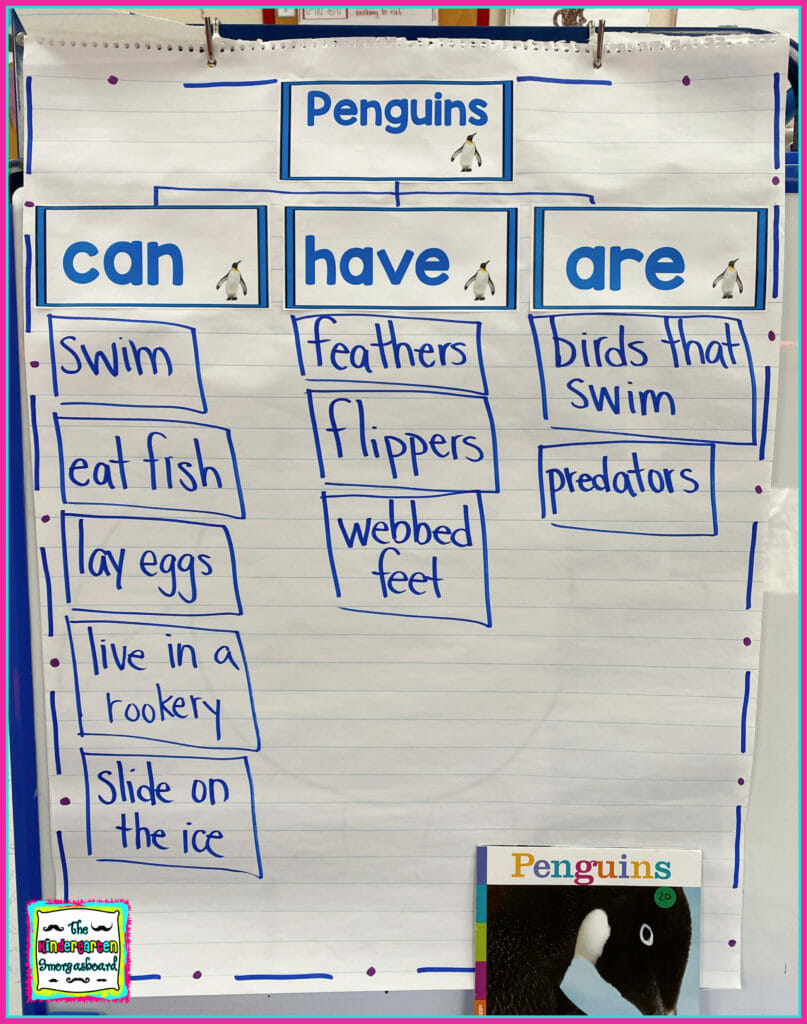 Penguins
can
have
are
swim
eat fish
lay eggs
live in a
rookery
slide on
the ice
feathers
flippers
webbed
feet
birds that
swim
predators
Penguins
20
The
Kindergarten
Smorgasboard